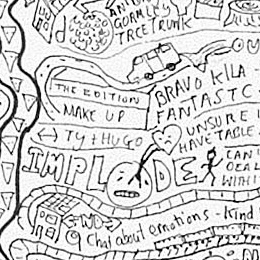 GORMLEY
TREE TRUNK
OU
THE EDITION
MAKE UP
BRAVO KILA -
FANTASTC -
TY + HUGO
UNSURE I
HAVE TABLE
IMPLODE
CAN
DEAL
WITH
END
Chat about emotions - Kind